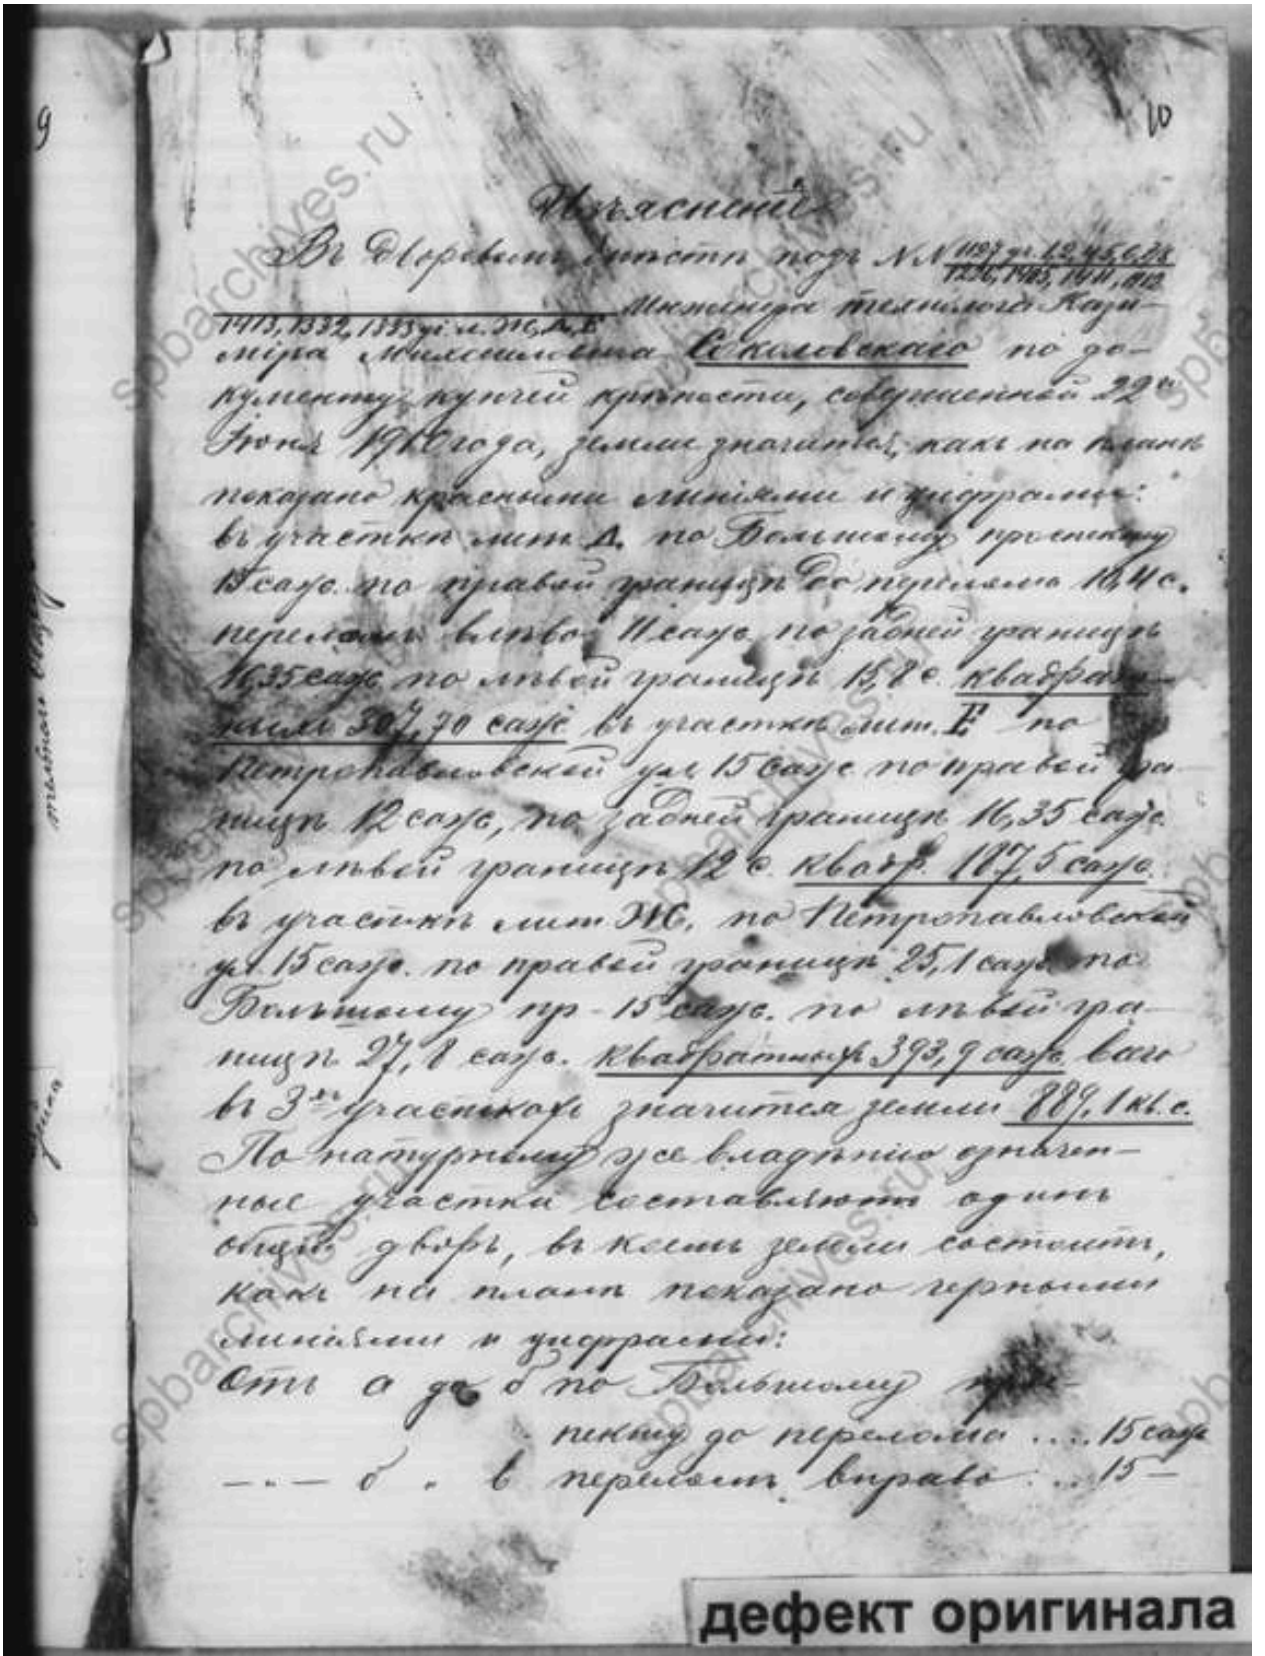 10
9
Изъясненіе
Въ Дворовомъ мѣстѣ подъ NN 1197 уч. 1,2,4,5,6,7,8
1226, 1405, 1411, 1412
Инженера технолога Кази-
1413, 1332, 1333 уч. л. Ж, Д, Е
міра Соколовскаго по до-
кументу купчей крѣпости, совершенной 22го
Іюня 1910 года, земли значится, какъ на планѣ
показано красными линіями и цифрами:
въ участкѣ лит. Д. по Большому проспекту
15 саж. по правой границѣ до перелома 10,4 с.
переломъ влѣво 11 саж. по задней границѣ
16,35 саж. по лѣвой границѣ 15,8 с. квадрат-
ныхъ 307,70 саж. въ участкѣ лит. Е по
Петропавловской ул. 15 саж. по правой гра-
ницѣ 12 саж., по задней границѣ 16,35 саж.
по лѣвой границѣ 12 с. квадр. 187,5 саж.
въ участкѣ лит. Ж. по Петропавловской
ул. 15 саж. по правой границѣ 25,1 саж. по
Большому пр - 15 саж. по лѣвой гра-
ницѣ 27,8 саж. квадратныхъ 393,9 саж. всего
въ 3хъ участкахъ значится земли 889,1 кв. с.
По натурному же владѣнію означен-
ные участки составляютъ одинъ
общій дворъ, въ коемъ земли состоитъ,
какъ на планѣ показано черными
линіями и цифрами:
Отъ а до б по Большому прос-
пекту до перелома .... 15 саж
—"— б " в переломъ вправо ... 15 —
дефект оригинала
spbarchives.ru